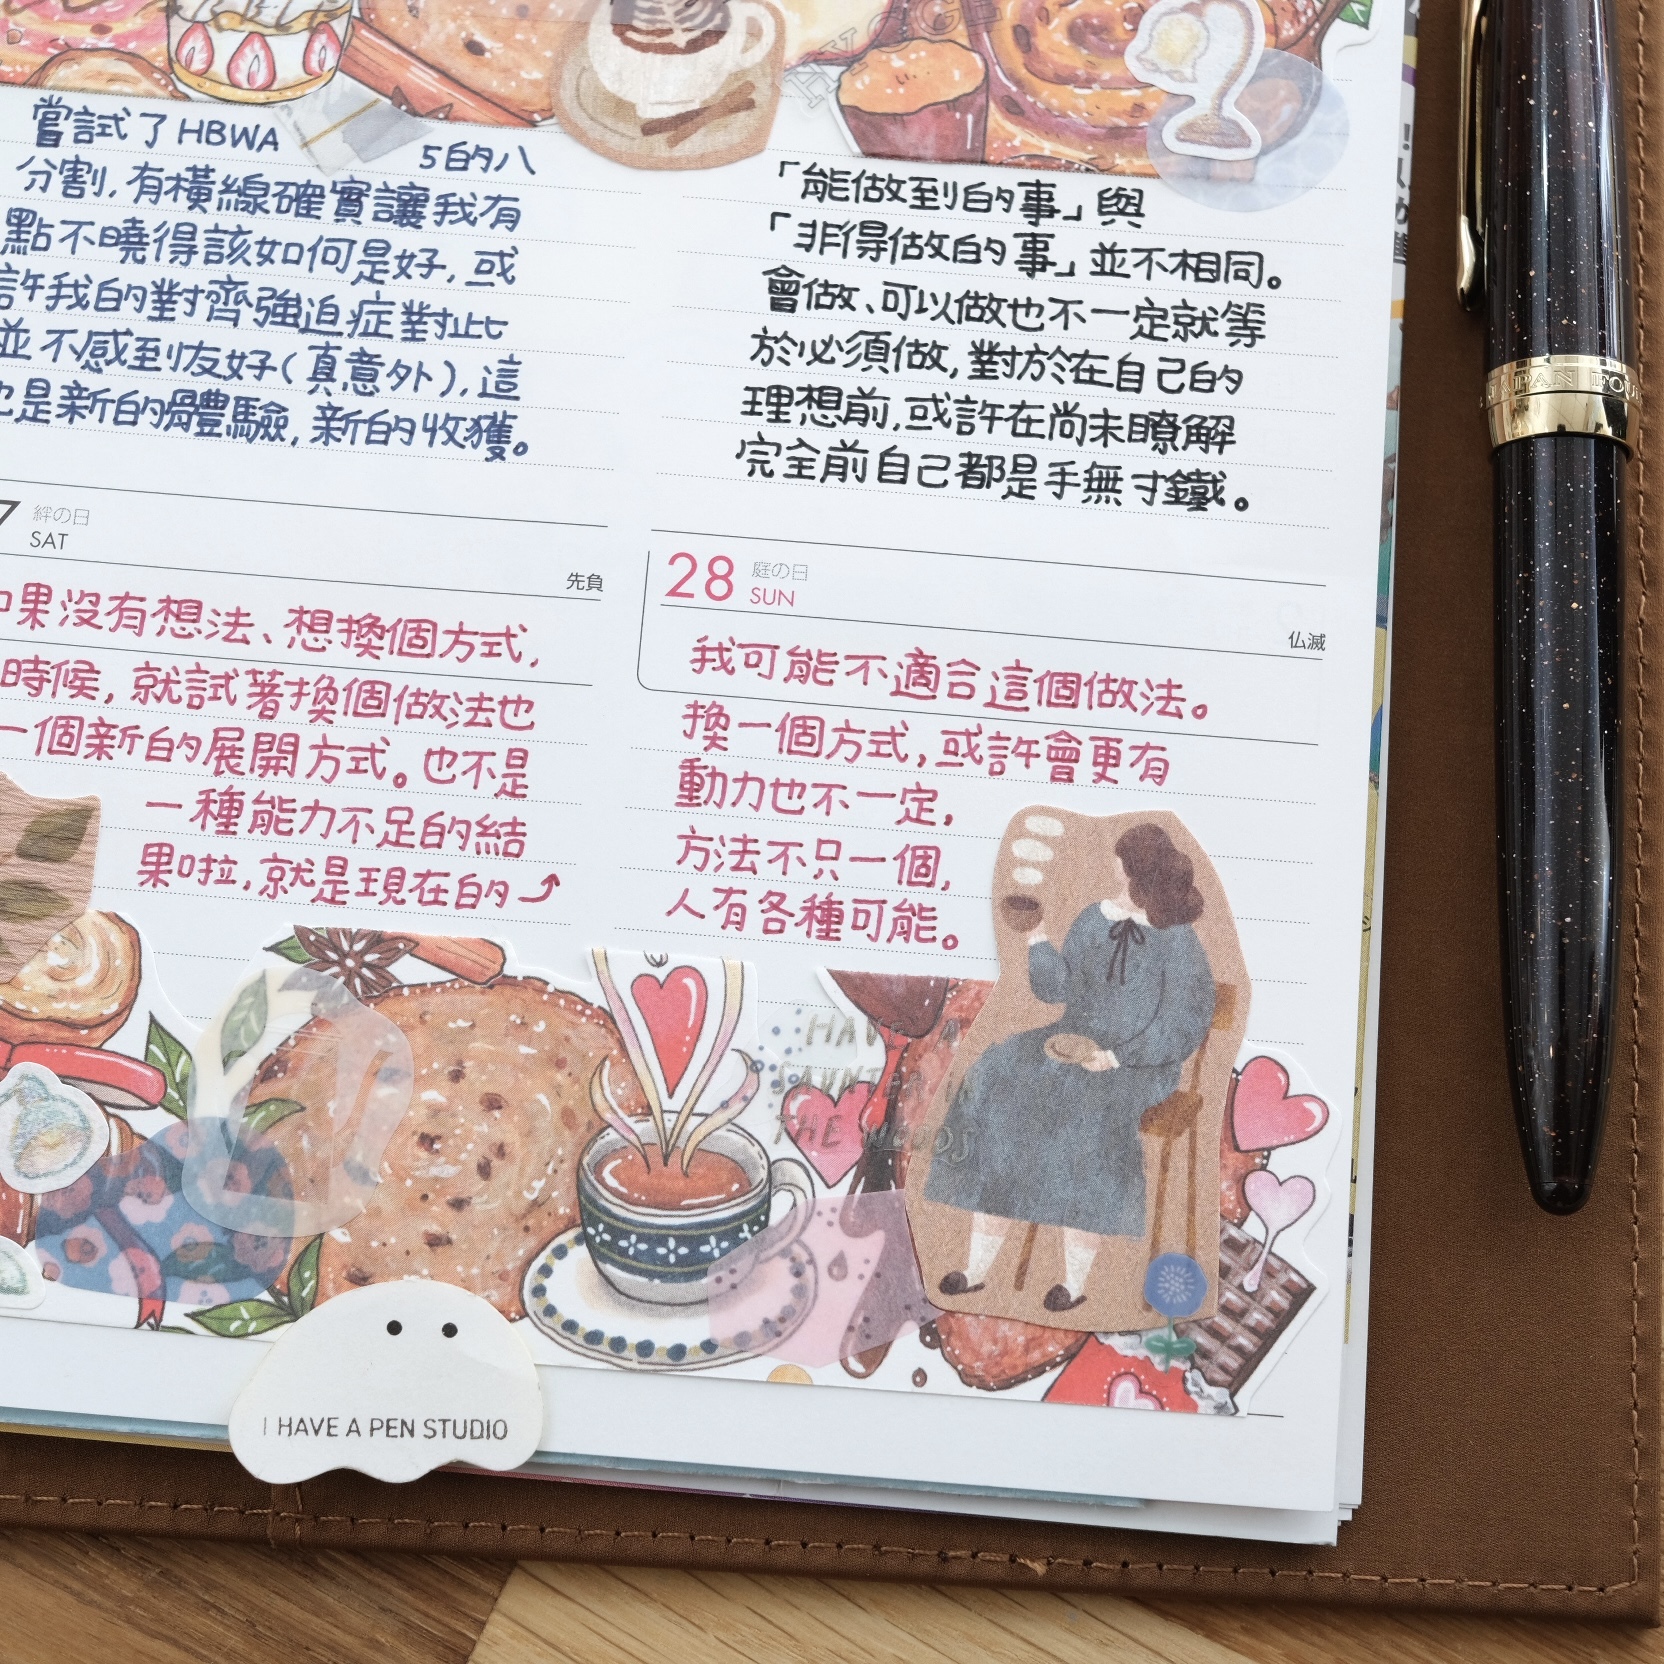 HYGGE
嘗試了HBWA
5的八
分割,有橫線確實讓我有
點不曉得該如何是好,或
許我的對齊強迫症對此
並不感到友好(真意外),這
也是新的體驗,新的收獲。
「能做到的事」與
「非得做的事」並不相同。
會做、可以做也不一定就等
於必須做,對於在自己的
理想前,或許在尚未瞭解
完全前自己都是手無寸鐵。
7 絆の日
SAT
先負
如果沒有想法、想換個方式,
時候,就試著換個做法也
一個新的展開方式。也不是
一種能力不足的結
果啦,就是現在的
28 庭の日
SUN
仏滅
我可能不適合這個做法。
換一個方式,或許會更有
動力也不一定,
方法不只一個,
人有各種可能。
HAVE A
SAUNTER IN
THE WOODS
I HAVE A PEN STUDIO
JAPAN FOU